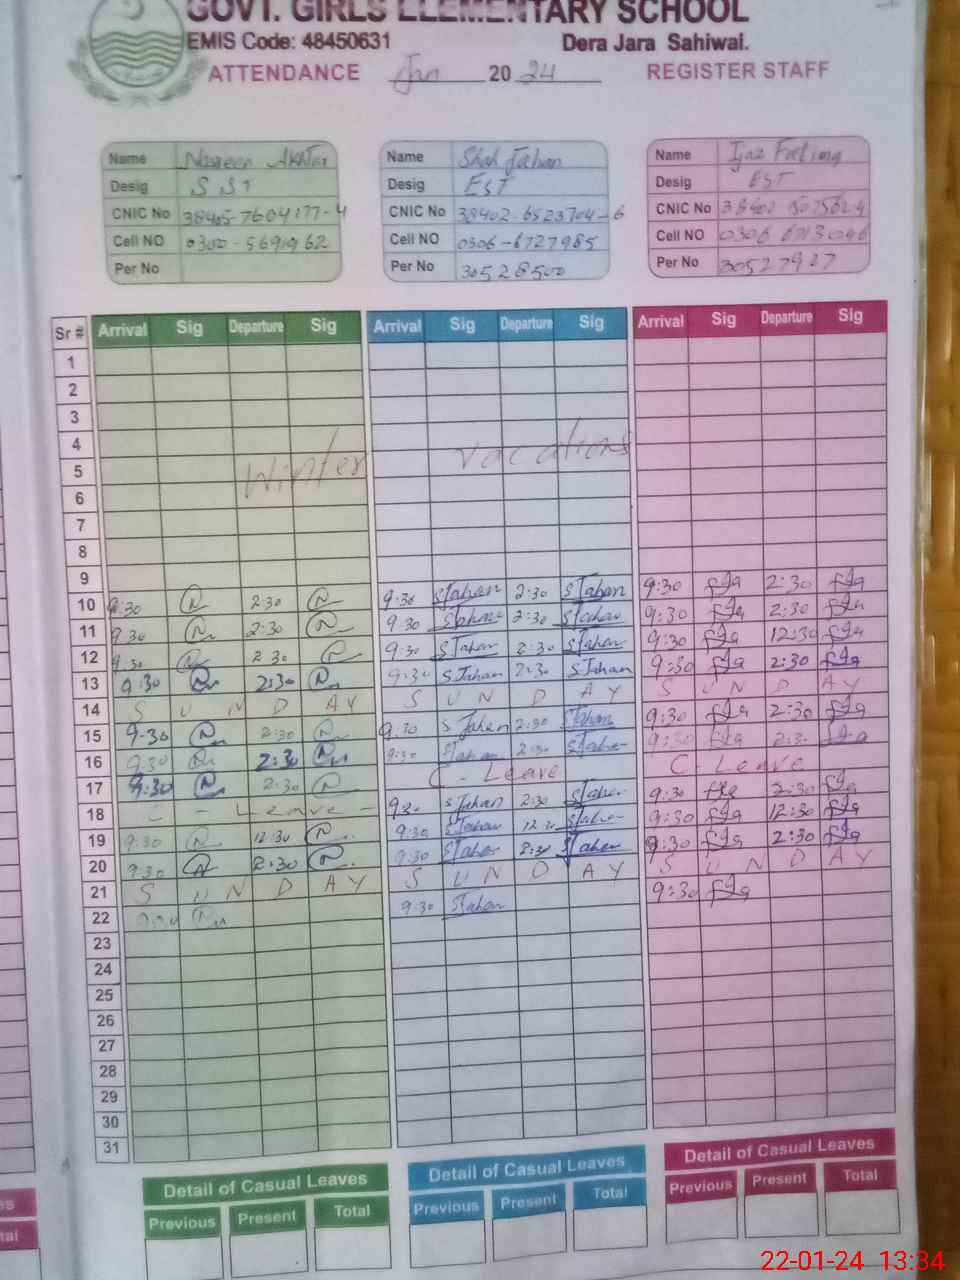 GOVT. GIRLS ELEMENTARY SCHOOL
EMIS Code: 48450631 Dera Jara Sahiwal.
ATTENDANCE Jan 2024 REGISTER STAFF
Name Nasreen Akhtar Name Shah Jahan Name Ijaz Fatima
Desig SST Desig EST Desig EST
CNIC No 38405-7604177-4 CNIC No 38402-6523704-6 CNIC No
Cell NO 0300-5691962 Cell NO 0306-6727985 Cell NO
Per No Per No 30528500 Per No 30527927
Sr # Arrival Sig Departure Sig Arrival Sig Departure Sig Arrival Sig Departure Sig
1
2
3
4
5 Winter vacations
6
7
8
9
10 9:30 2:30 9:30 SJahan 2:30 SJahan 9:30 2:30
11 9:30 2:30 9:30 SJahan 2:30 SJahan 9:30 2:30
12 9:30 2:30 9:30 SJahan 2:30 SJahan 9:30 12:30
13 9:30 2:30 9:30 SJahan 2:30 SJahan 9:30 2:30
14 S U N D A Y S U N D A Y S U N D A Y
15 9:30 2:30 9:30 SJahan 2:30 SJahan 9:30 2:30
16 9:30 2:30 9:30 SJahan 2:30 SJahan 9:30 2:30
17 9:30 2:30 C-Leave C-Leave
18 C Leave 9:30 SJahan 2:30 SJahan 9:30 2:30
19 9:30 12:30 9:30 SJahan 12:30 SJahan 9:30 12:30
20 9:30 2:30 9:30 SJahan 2:30 SJahan 9:30 2:30
21 S U N D A Y S U N D A Y S U N D A Y
22 9:30 SJahan 9:30
23
24
25
26
27
28
29
30
31
Detail of Casual Leaves Detail of Casual Leaves Detail of Casual Leaves
Previous Present Total Previous Present Total Previous Present Total
22-01-24 13:34